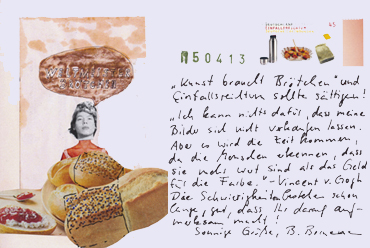 WELTMEISTER
45
150413
„Kunst braucht Brötchen" und
Einfallsreichtum sollte sättigen!
„Ich kann nichts dafür, dass meine
Bilder sich nicht verkaufen lassen.
Aber es wird die Zeit kommen,
da die Menschen erkennen, dass
sie mehr wert sind als das Geld
für die Farbe." - Vincent v. Gogh
Die Schwierigkeiten schon
lange, gut, dass Ihr darauf auf-
merksam macht!
Sonnige Grüße, B.